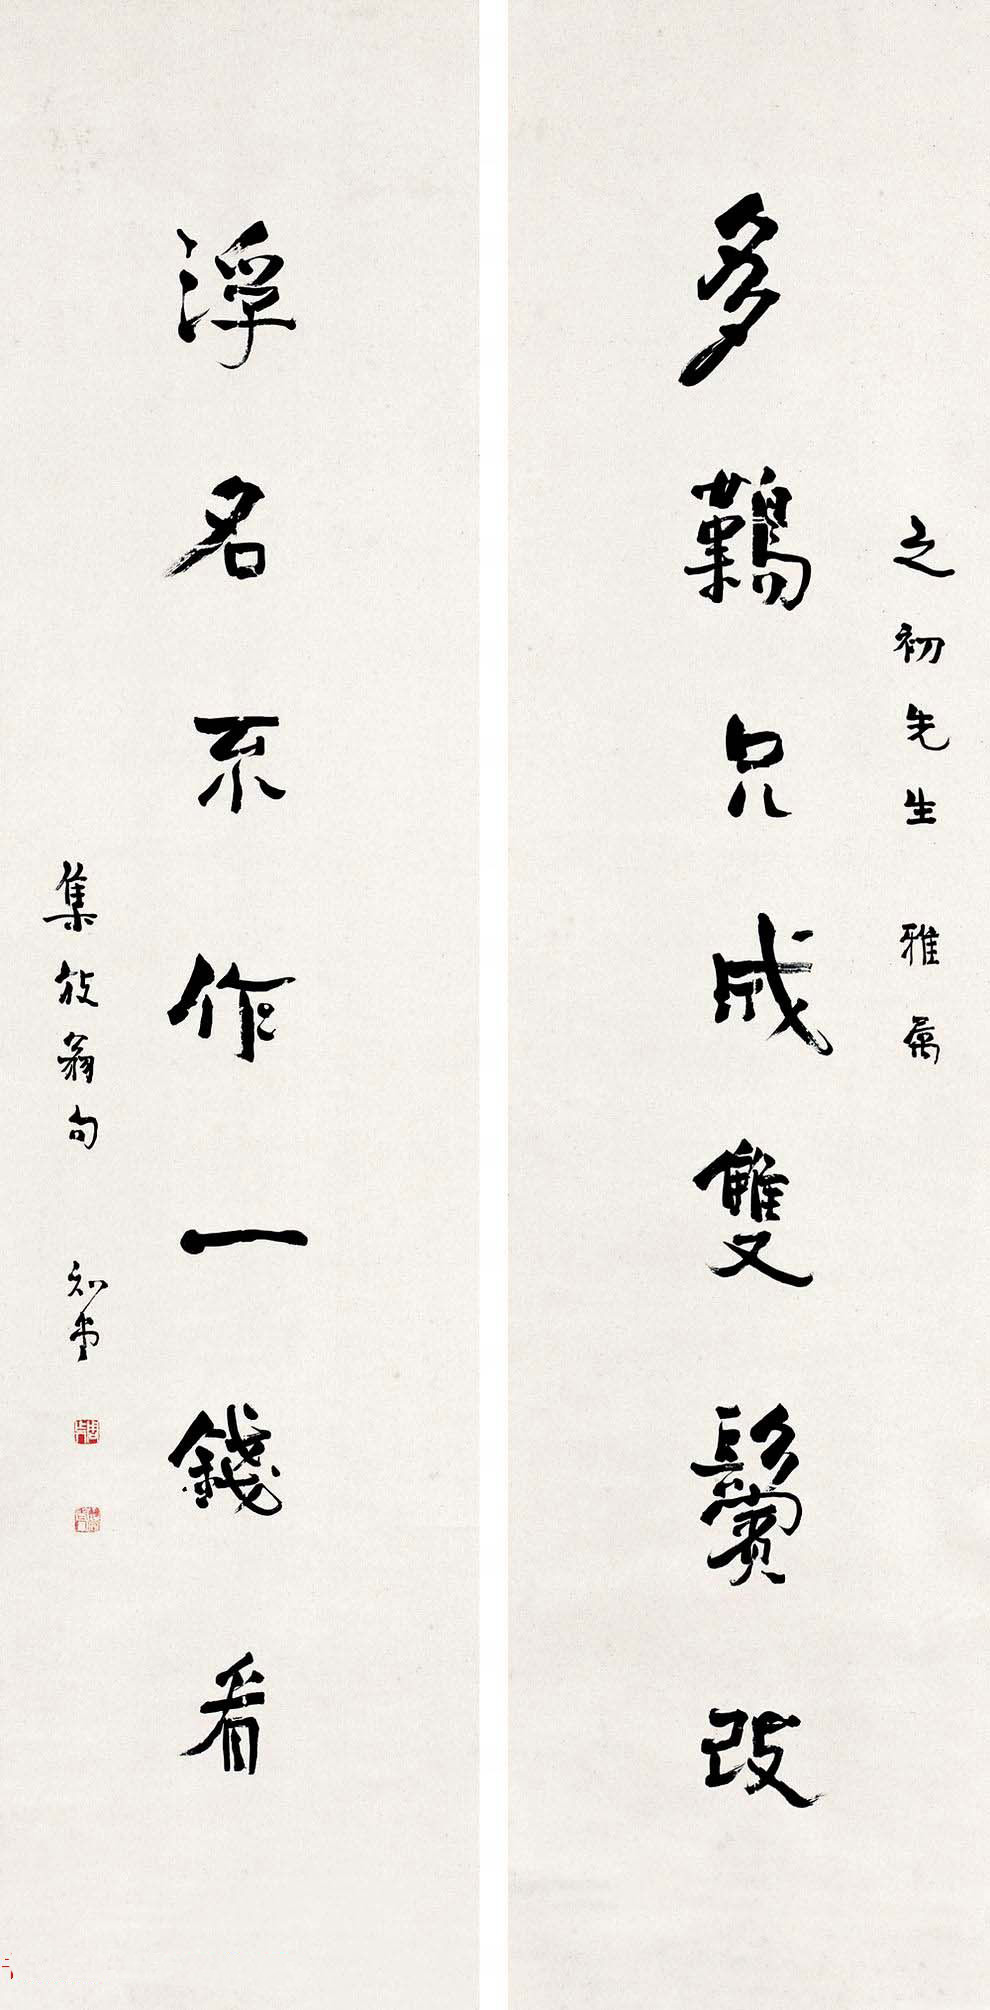 之初先生 雅属
多難只成雙鬢改
浮名不作一錢看
集放翁句 知堂